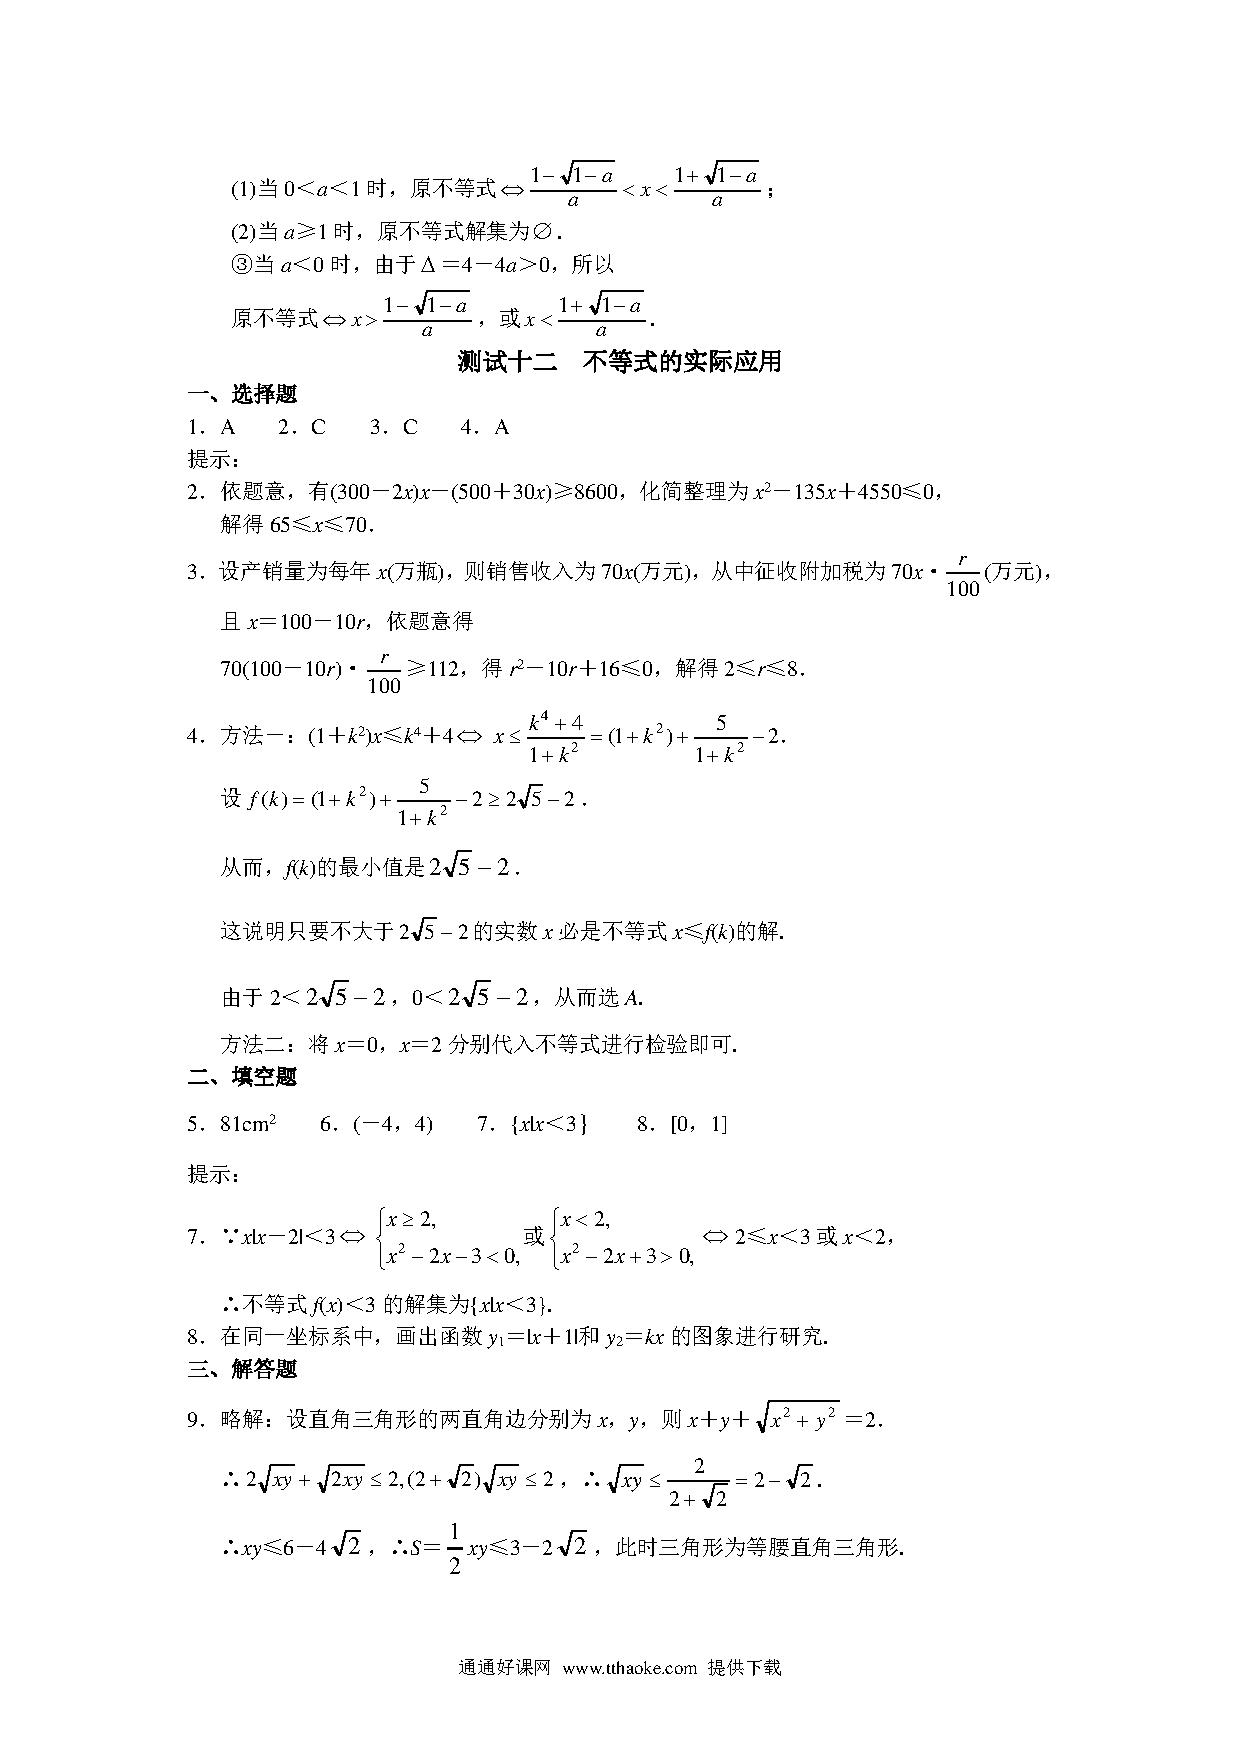 (1)当 0＜a＜1 时，原不等式⇔ (1−√(1−a))/a < x < (1+√(1−a))/a ；
(2)当 a≥1 时，原不等式解集为∅．
③当 a＜0 时，由于 Δ＝4－4a＞0，所以
原不等式⇔ x > (1−√(1−a))/a ，或 x < (1+√(1−a))/a ．
测试十二　不等式的实际应用
一、选择题
1．A　2．C　3．C　4．A
提示：
2．依题意，有(300－2x)x－(500＋30x)≥8600，化简整理为 x2－135x＋4550≤0，
解得 65≤x≤70．
3．设产销量为每年 x(万瓶)，则销售收入为 70x(万元)，从中征收附加税为 70x· r/100 (万元)，
且 x＝100－10r，依题意得
70(100－10r)· r/100 ≥112，得 r2－10r＋16≤0，解得 2≤r≤8．
4．方法一：(1＋k²)x≤k⁴＋4⇔ x ≤ (k⁴+4)/(1+k²) = (1+k²) + 5/(1+k²) − 2．
设 f(k) = (1+k²) + 5/(1+k²) − 2 ≥ 2√5 − 2．
从而，f(k)的最小值是 2√5 − 2．
这说明只要不大于 2√5 − 2 的实数 x 必是不等式 x≤f(k)的解．
由于 2＜2√5 − 2，0＜2√5 − 2，从而选 A．
方法二：将 x＝0，x＝2 分别代入不等式进行检验即可．
二、填空题
5．81cm²　6．(－4，4)　7．{x|x＜3}　8．[0，1]
提示：
7．∵x|x－2|＜3⇔ {x ≥ 2, x² − 2x − 3 < 0, 或 {x < 2, x² − 2x + 3 > 0, ⇔ 2≤x＜3 或 x＜2，
∴不等式 f(x)＜3 的解集为{x|x＜3}．
8．在同一坐标系中，画出函数 y₁＝|x＋1|和 y₂＝kx 的图象进行研究．
三、解答题
9．略解：设直角三角形的两直角边分别为 x，y，则 x＋y＋ √(x² + y²) ＝2．
∴2√xy + √2xy ≤ 2,(2+√2)√xy ≤ 2，∴ √xy ≤ 2/(2+√2) = 2 − √2．
∴xy≤6－4√2，∴S＝ 1/2 xy≤3－2√2，此时三角形为等腰直角三角形．
通通好课网 www.tthaoke.com 提供下载